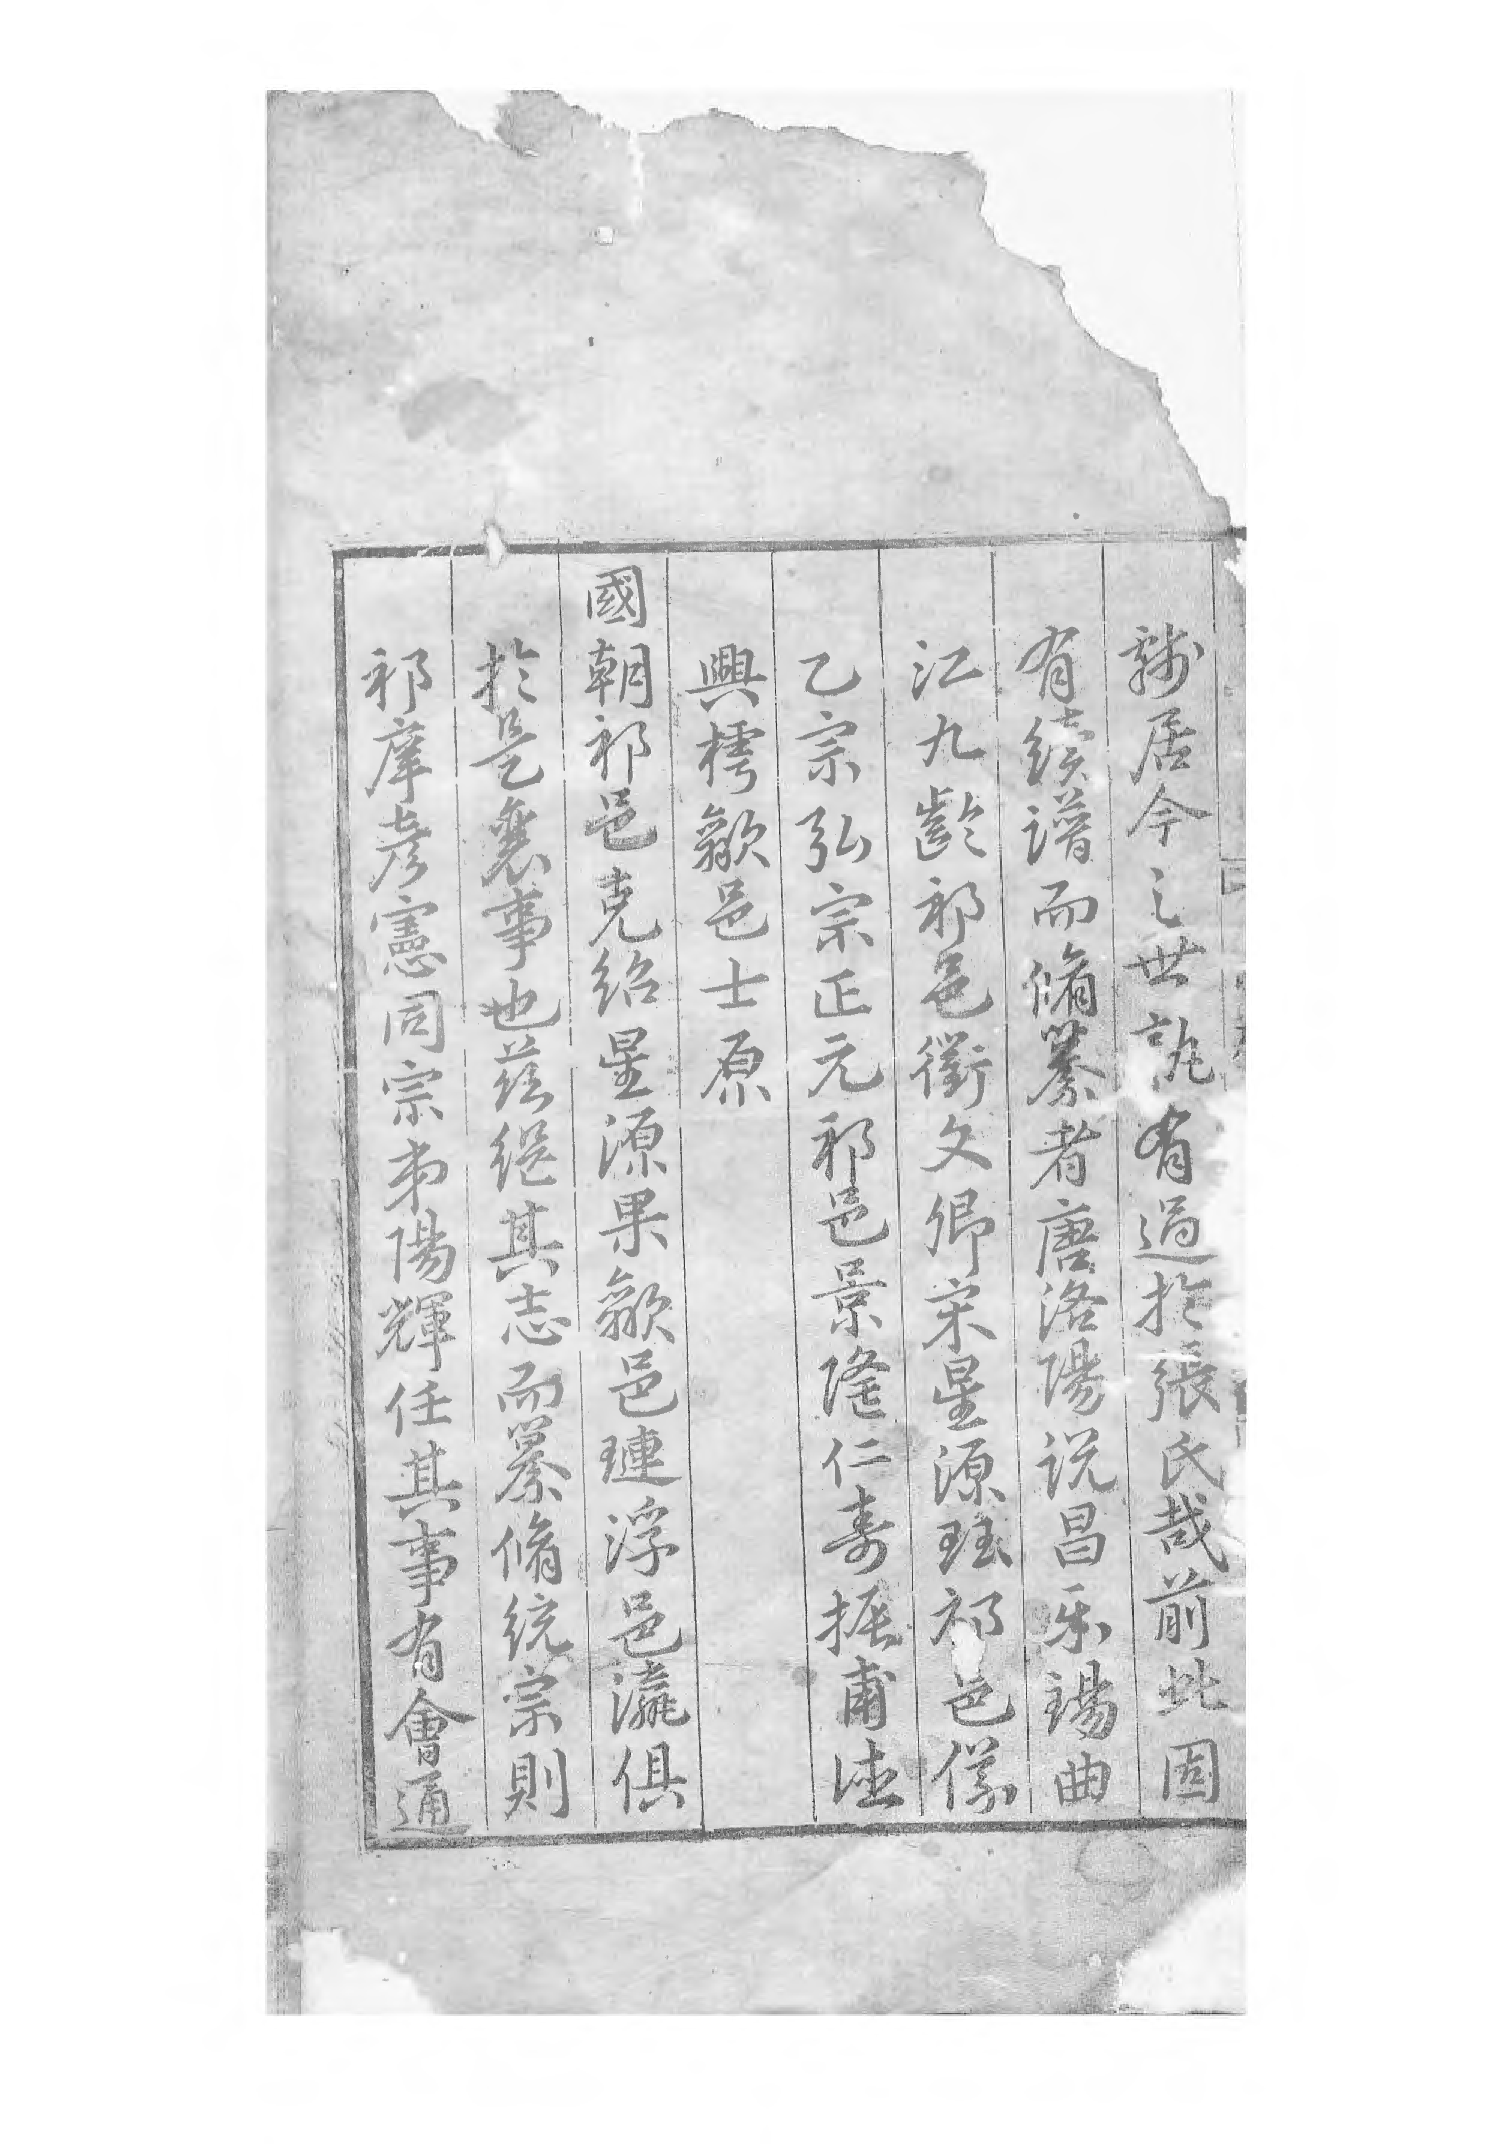 居今之世孰有過於張氏哉前此固
有續譜而脩纂者唐洛陽説昌乐瑒曲
江九齡祁邑衢文卿宋星源珏祁邑傑
乙宗弘宗正元祁邑景隆仁壽振甫
興樗歙邑士原
國朝祁邑克紹星源果歙邑璉浮邑瀛俱
於是襄事也兹継其志而纂脩統宗則
祁庠彦憲同宗弟陽輝任其事有會通